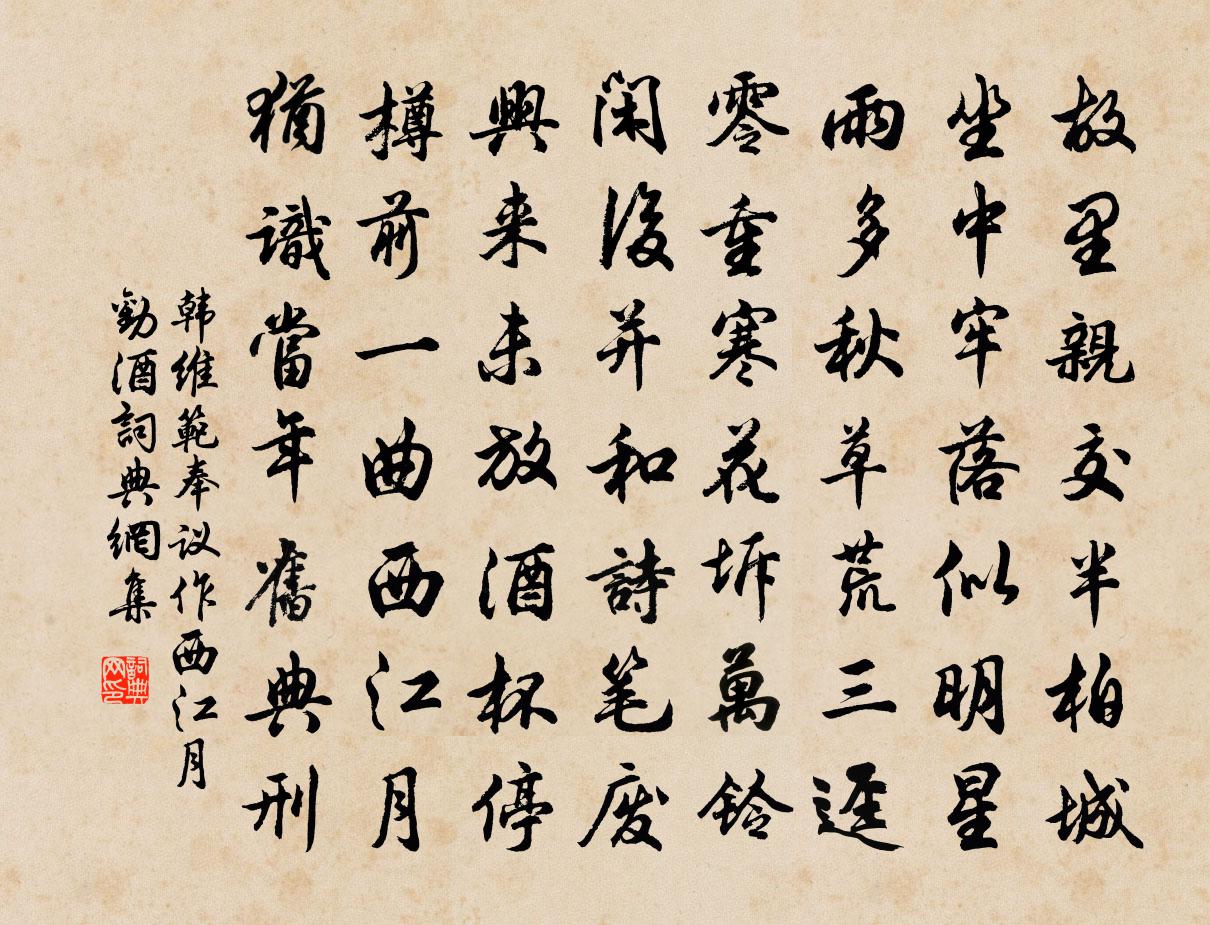 故里親交半柏城
坐中牢落似明星
雨多秋草荒三逕
露重寒花坼萬鈴
閑後并和詩笔废
興来未放酒杯停
樽前一曲西江月
猶識當年舊典刑
韩维範奉议作西江月
勸酒詞典網集
詞典网印